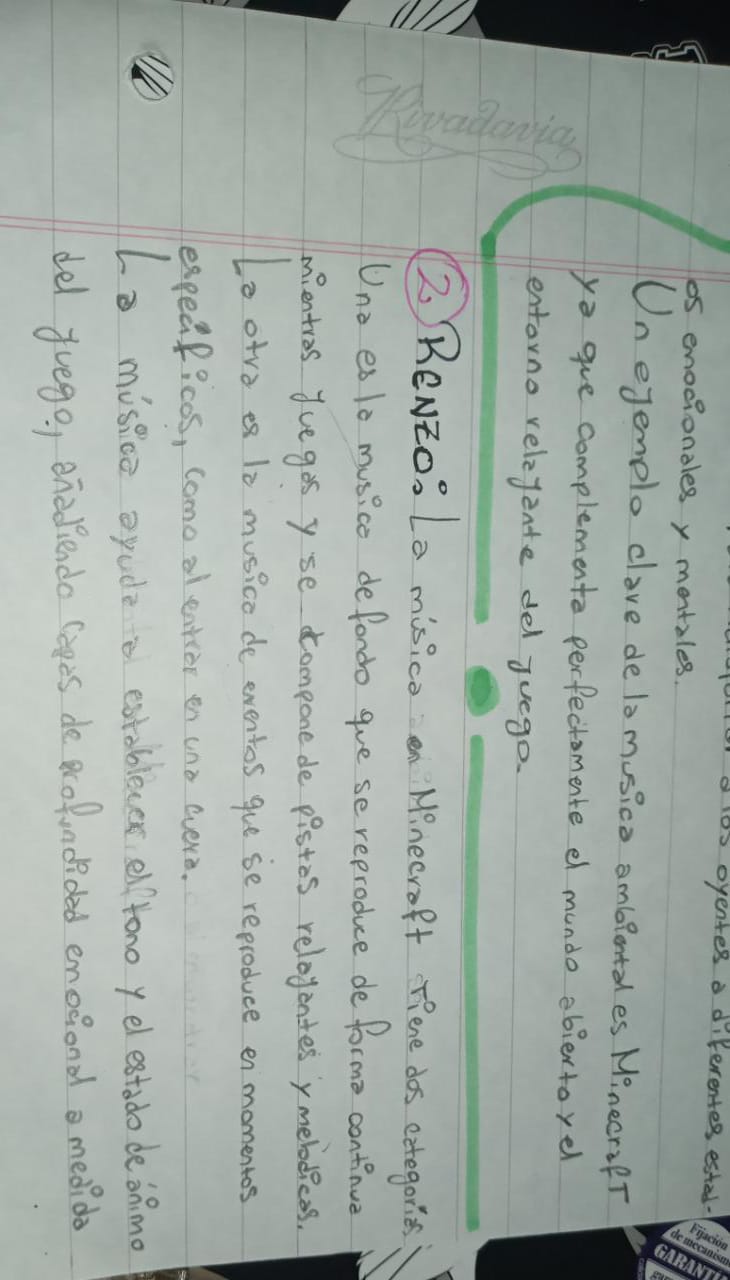 a los oyentes a diferentes estad-
os emocionales y mentales.
Un ejemplo clave de la musica ambiental es Minecraft
ya que complementa perfectamente el mundo abierto y el
entorno relajante del juego.
2. RENZO: La música en Minecraft tiene dos categorías
Una es la musica de fondo que se reproduce de forma continua
mientras juegas y se compone de pistas relajantes y melodicas.
La otra es la musica de eventos que se reproduce en momentos
específicos, como al entrar en una cueva.
La música ayuda a establecer el tono y el estado de ánimo
del juego, añadiendo capas de profundidad emocional a medida
Rivadavia
Fijación
de mecanism
GARANTI